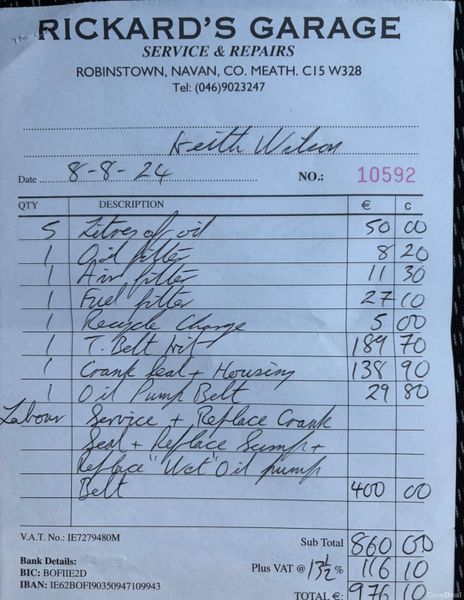 RICKARD'S GARAGE
SERVICE & REPAIRS
ROBINSTOWN, NAVAN, CO. MEATH. C15 W328
Tel: (046)9023247
Keith Wilson
Date 8-8-24 NO.: 10592
QTY DESCRIPTION € c
5 Litres of oil 50 00
1 Oil filter 8 20
1 Air filter 11 30
1 Fuel filter 27 10
1 Recycle Charge 5 00
1 T. Belt Kit 189 70
1 Crank Seal + Housing 138 90
1 Oil Pump Belt 29 80
Labour Service + Replace Crank
Seal + Replace Sump +
Replace "Wet" Oil pump
Belt 400 00
V.A.T. No.: IE7279480M
Sub Total 860 00
Bank Details:
Plus VAT @ 13½ % 116 10
BIC: BOFIIE2D
IBAN: IE62BOFI90350947109943
TOTAL €: 976 10
DoneDeal